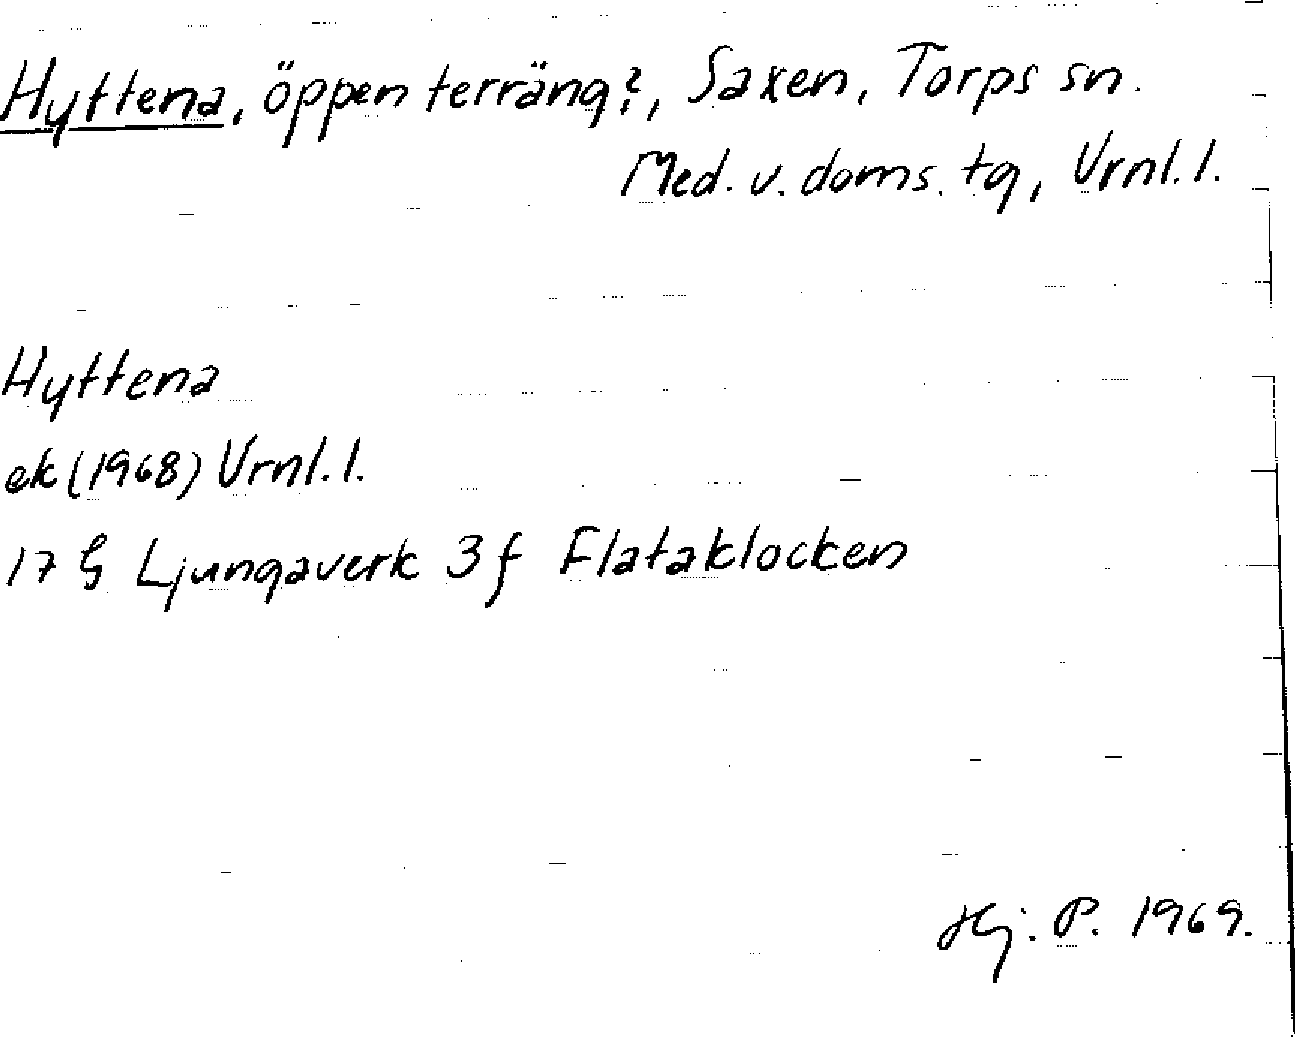 Hyttena, öppen terräng?, Saxen, Torps sn.
Med. v. doms. tg, Vrnl. l.
Hyttena
ek (1968) Vrnl. l.
17 G Ljungaverk 3f Flataklocken
Hj. P. 1969.